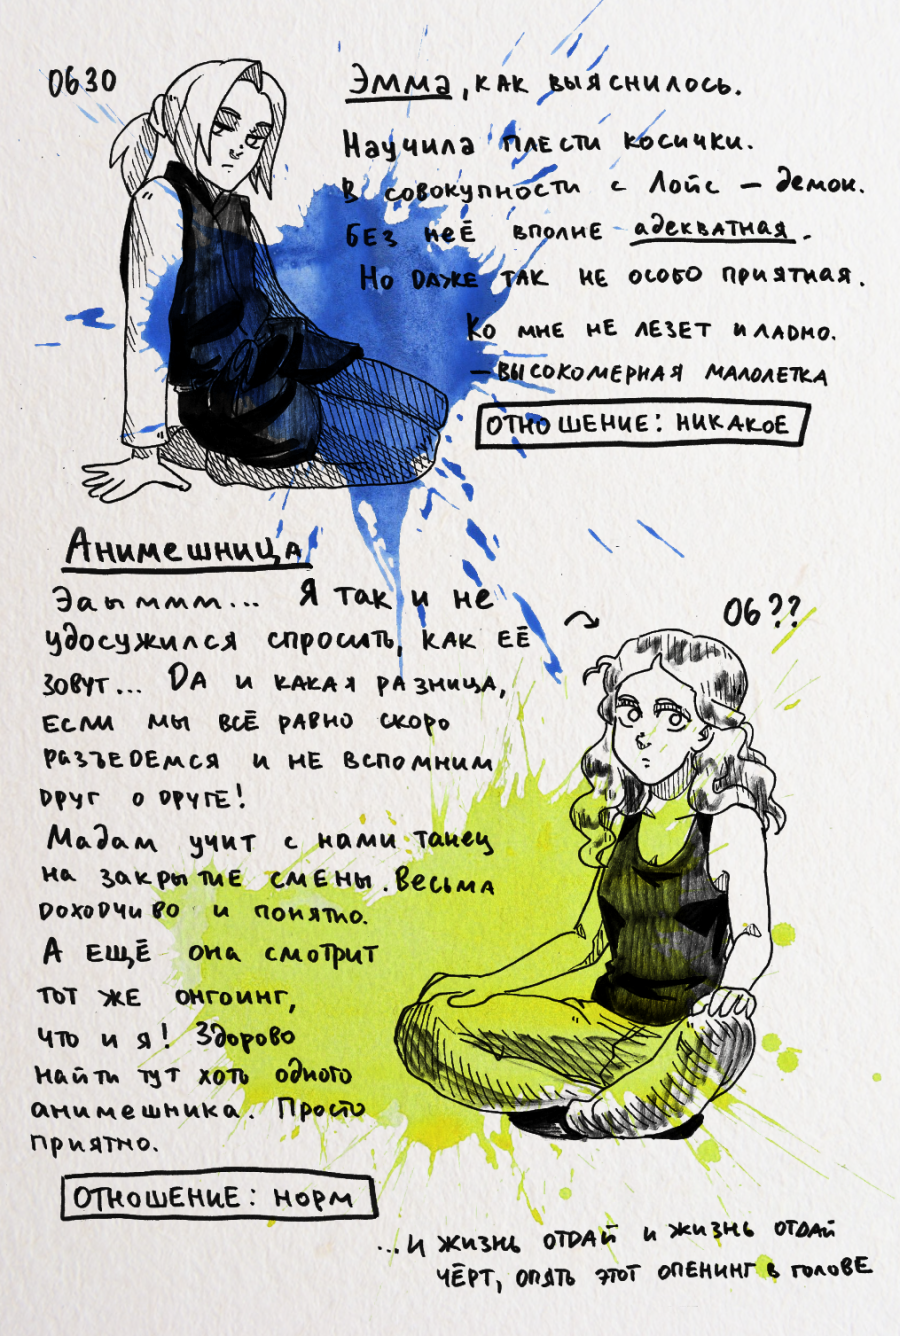 0630
Эмма, как выяснилось.
Научила плести косички.
В совокупности с Лойс – демон.
Без неё вполне адекватная.
Но даже так не особо приятная.
Ко мне не лезет и ладно.
– высокомерная малолетка
Отношение: никакое
Анимешница
Эаымммм... Я так и не
удосужился спросить, как её
зовут... Да и какая разница,
если мы всё равно скоро
разъедемся и не вспомним
друг о друге!
06??
Мадам учит с нами танец
на закрытие смены. Весьма
доходчиво и понятно.
А ещё она смотрит
тот же онгоинг,
что и я! Здорово
найти тут хоть одного
анимешника. Просто
приятно.
Отношение: норм
...И жизнь отдай и жизнь отдай
чёрт, опять этот опенинг в голове